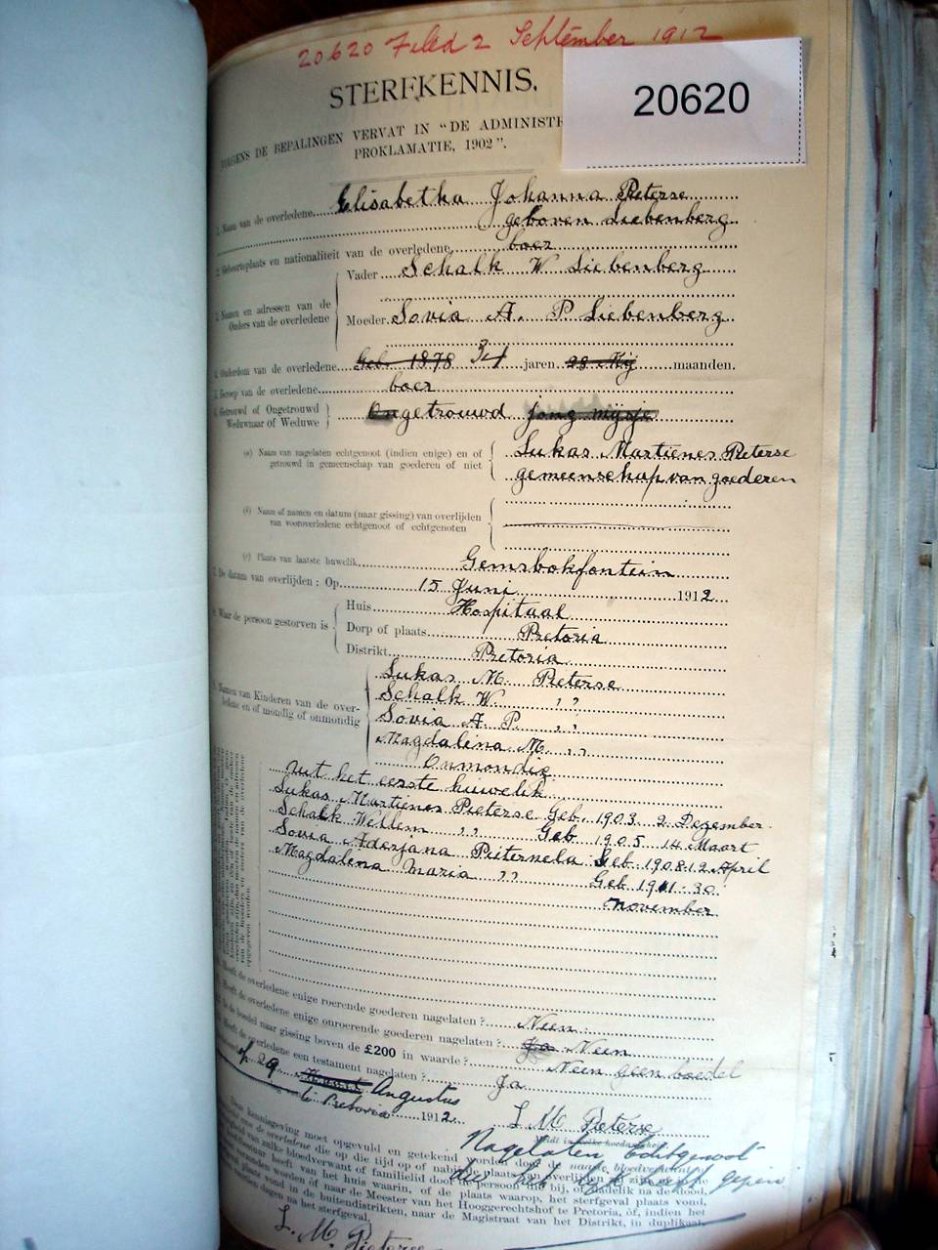 20620 Filed 2 September 1912
20620
STERFKENNIS.
DE BEPALINGEN VERVAT IN "DE ADMINISTR
PROKLAMATIE, 1902".
1. Naam van de overledene Elisabetha Johanna Pieterse
geboren Liebenberg
2. Geboorteplaats en nationaliteit van de overledene boer
3. Namen en adressen van de Ouders van de overledene
Vader Schalk W Liebenberg
Moeder Sovia A. P Liebenberg
4. Ouderdom van de overledene Geb. 1878 34 jaren maanden.
5. Beroep van de overledene boer
6. Getrouwd of Ongetrouwd
Weduwnaar of Weduwe
Ongetrouwd jong
(a) Naam van nagelaten echtgenoot (indien enige) en of
getrouwd in gemeenschap van goederen of niet
Lukas Martienes Pieterse
gemeenschap van goederen
(b) Naam of namen en datum (naar gissing) van overlijden
van vooroverledene echtgenoot of echtgenoten
(c) Plaats van laatste huwelik Gemsbokfontein
7. De datum van overlijden: Op 15 Juni 1912
8. Waar de persoon gestorven is
Huis Hospitaal
Dorp of plaats Pretoria
Distrikt Pretoria
9. Namen van Kinderen van de over-
ledene en of mondig of onmondig
Lukas M. Pieterse
Schalk W. ,,
Sovia A. P. ,,
Magdalena M. ,,
Onmondig
uit het eerste huwelik
Lukas Martienes Pieterse Geb. 1903 2 Dezember
Schalk Willem ,, Geb 1905 14 Maart
Sovia Aderjana Pieternela Geb. 1908 12 April
Magdalena Maria ,, Geb 1911 30
november
Heeft de overledene enige roerende goederen nagelaten? Neen
Heeft de overledene enige onroerende goederen nagelaten? Ja Neen
Is de boedel naar gissing boven de £200 in waarde? Neen geen boedel
Heeft de overledene een testament nagelaten? Ja
op 29 Angustus
te Pretoria 1912
L M Pieterse
Nagelaten Echtgenoot
Deze kennisgeving moet opgevuld en getekend worden door de naaste bloedverwant
het Hooggerechtshof te Pretoria, of, indien het
in de buitendistrikten, naar de Magistraat van het Distrikt, in duplikaat,
na het sterfgeval.
L. M. Pieterse